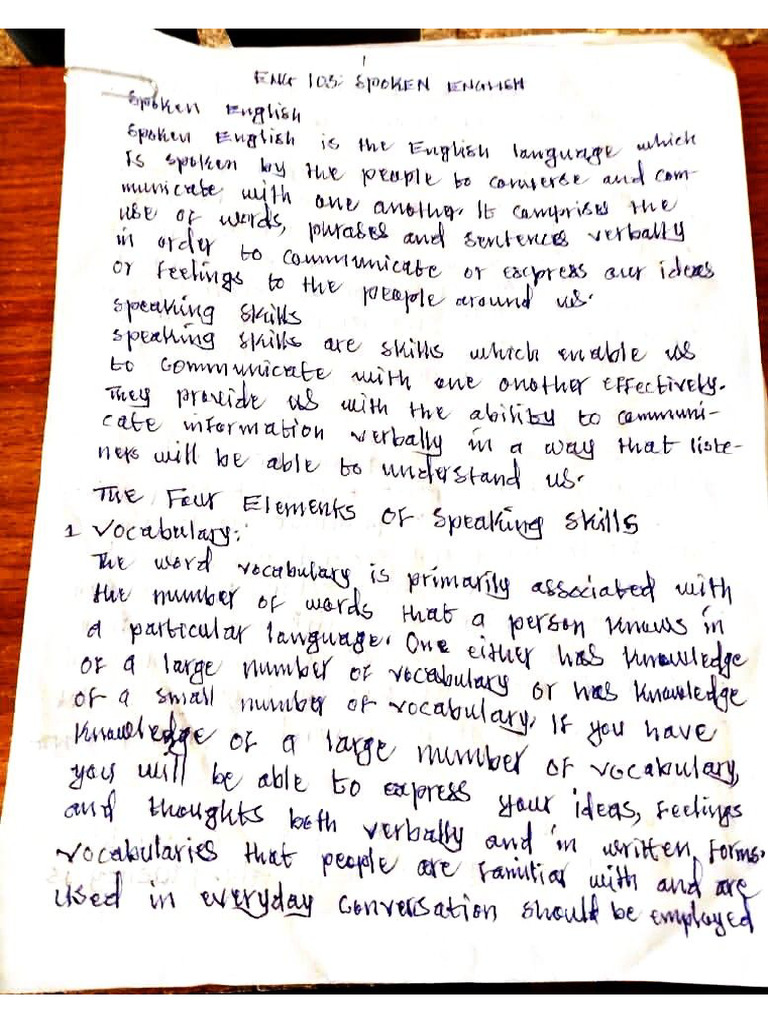 1
ENG 103: SPOKEN ENGLISH
Spoken English
Spoken English is the English language which
is spoken by the people to converse and com-
municate with one another. It comprises the
use of words, phrases and sentences verbally
in order to communicate or express our ideas
or feelings to the people around us.
Speaking skills
Speaking skills are skills which enable us
to communicate with one another effectively.
They provide us with the ability to communi-
cate information verbally in a way that liste-
ners will be able to understand us.
The Four Elements of Speaking Skills
1 Vocabulary:
The word vocabulary is primarily associated with
the number of words that a person knows in
a particular language. One either has knowledge
of a large number of vocabulary or has knowledge
of a small number of vocabulary. If you have
knowledge of a large number of vocabulary,
you will be able to express your ideas, feelings
and thoughts both verbally and in written forms.
Vocabularies that people are familiar with and are
used in everyday conversation should be employed